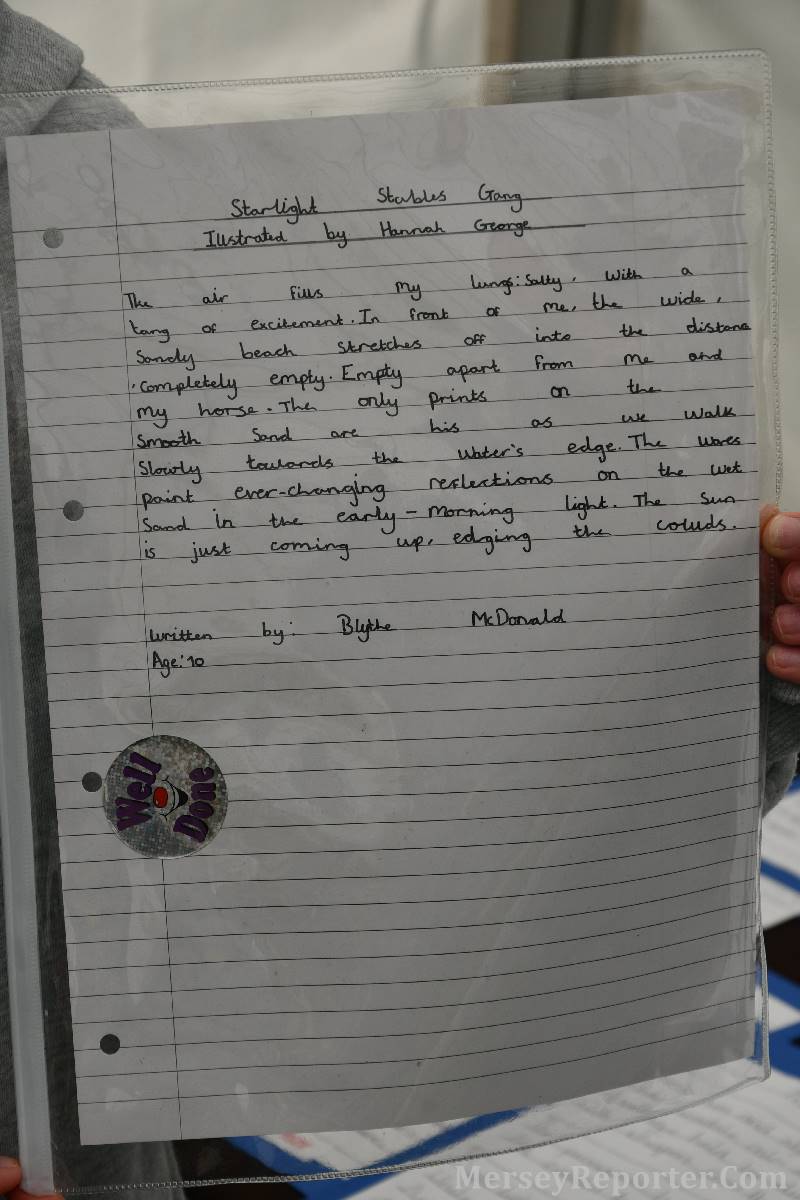 Starlight Stables Gang
Illustrated by Hannah George
The air fills my lungs: Salty. With a
tang of excitement. In front of me, the wide,
Sandy beach stretches off into the distance
completely empty. Empty apart from me and
my horse. The only prints on the
Smooth Sand are his as we walk
Slowly towards the water's edge. The waves
paint ever-changing reflections on the wet
Sand in the early - morning light. The Sun
is just coming up, edging the coluds.
Written by: Blythe McDonald
Age: 10
Well Done
MerseyReporter.Com